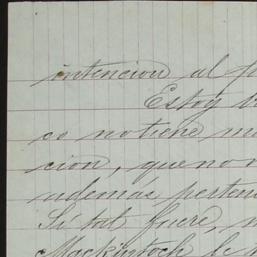 intencion al
Estoy
co no tiene
cion, que no
además
Si tal fuere,
Mackintosh le